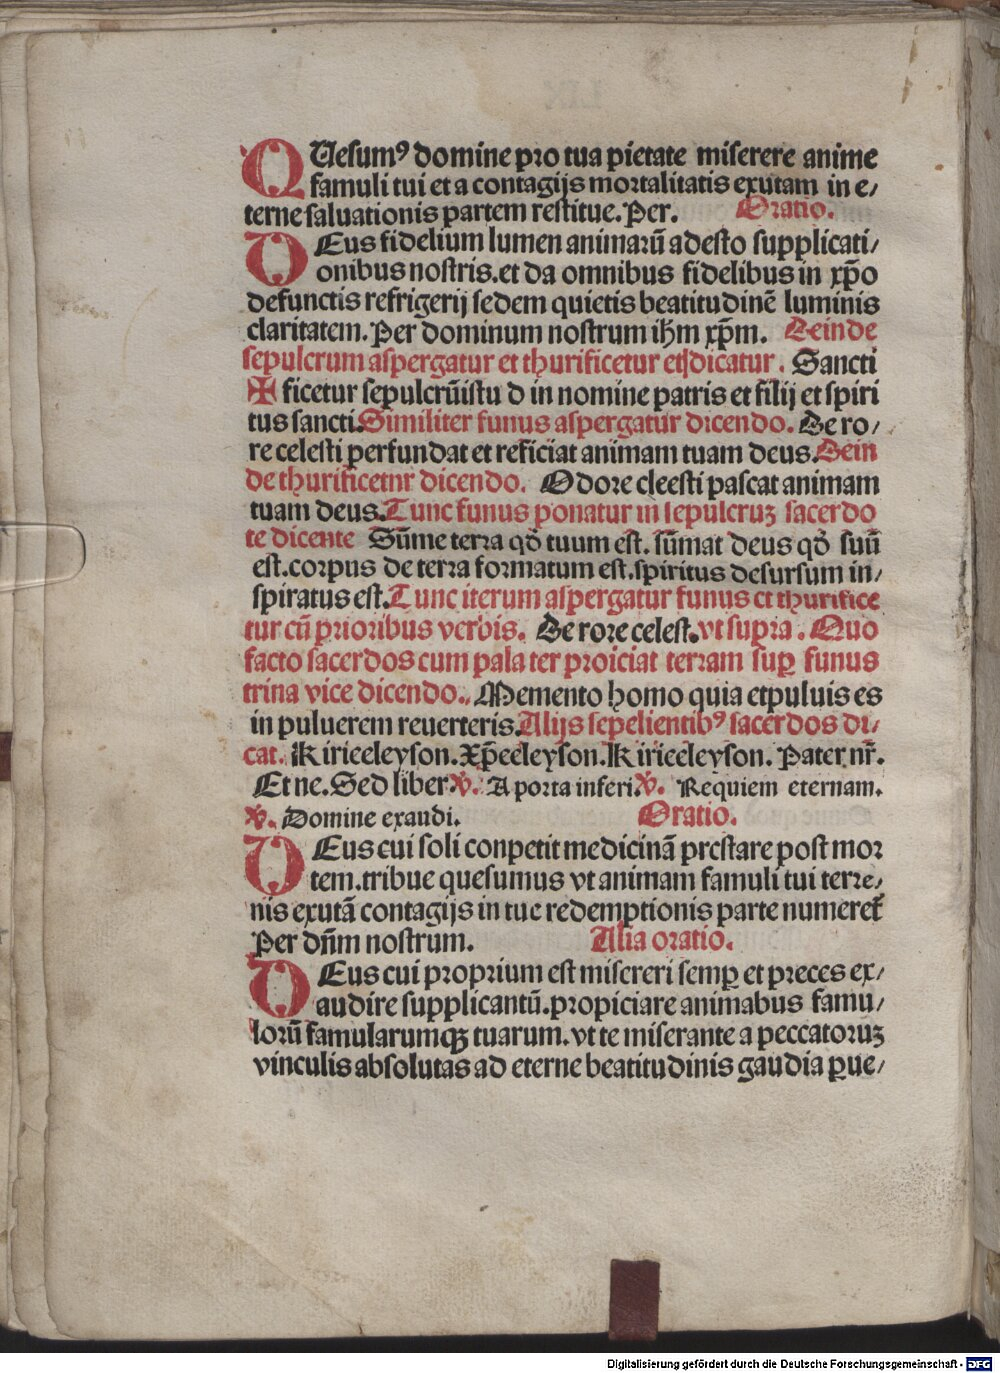 QUesumꝰ domine pro tua pietate miserere anime
famuli tui et a contagijs mortalitatis exutam in e/
terne saluationis partem restitue. Per. Oratio.
DEus fidelium lumen animarū adesto supplicati/
onibus nostris. et da omnibus fidelibus in xp̄o
defunctis refrigerij sedem quietis beatitudinē luminis
claritatem. Per dominum nostrum ihm xp̄m. Deinde
sepulcrum aspergatur et thurificetur etꝗdicatur. Sancti
✠ ficetur sepulcrūistu d in nomine patris et filij et spiri
tus sancti. Similiter funus aspergatur dicendo. De ro/
re celesti perfundat et reficiat animam tuam deus. Dein
de thurificetnr dicendo. Odore cleesti pascat animam
tuam deus. Tunc funus ponatur in sepulcruꝫ sacerdo
te dicente Sūme terra qd̄ tuum est. sūmat deus qd̄ suū
est. corpus de terra formatum est. spiritus desursum in/
spiratus est. Tunc iterum aspergatur funus et thurifice
tur cū prioribus verbis. De rore celest. vt supra. Quo
facto sacerdos cum pala ter proiciat terram suꝑ funus
trina vice dicendo.. Memento homo quia etpuluis es
in puluerem reuerteris. Alijs sepelientibꝰ sacerdos di/
cat. Kirieeleyson. Xp̄eeleyson. Kirieeleyson. Pater nr̄.
Et ne. Sed liber ꝟ. A porta inferi ꝟ. Requiem eternam.
ꝟ. Domine exaudi. Oratio.
DEus cui soli conpetit medicinā prestare post mor
tem. tribue quesumus vt animam famuli tui terre/
nis exutā contagijs in tue redemptionis parte numeret̄
Per dn̄m nostrum. Alia oratio.
DEus cui proprium est misereri semꝑ et preces ex/
audire supplicantū. propiciare animabus famu/
lorū famularumqꝫ tuarum. vt te miserante a peccatoruꝫ
vinculis absolutas ad eterne beatitudinis gaudia ꝑue/
Digitalisierung gefördert durch die Deutsche Forschungsgemeinschaft - DFG